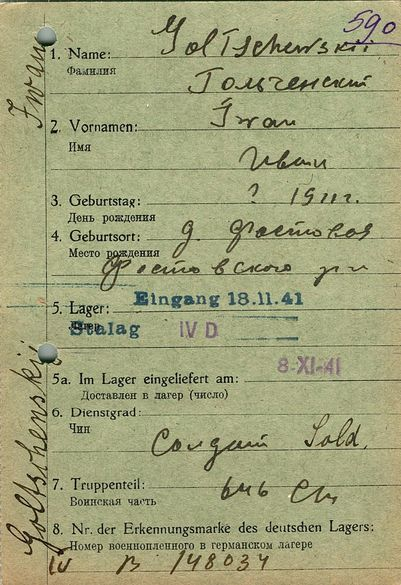 590
1. Name: Goltschewskii
Фамилия Гольченский
2. Vornamen: Iwan
Имя Иван
3. Geburtstag: ? 1911 г.
День рождения
4. Geburtsort: д.
Место рождения
5. Lager: Eingang 18.11.41
Лагерь Stalag IV D
8-XI-41
5a. Im Lager eingeliefert am:
Доставлен в лагерь (число)
6. Dienstgrad:
Чин Солдат Sold.
7. Truppenteil: 646
Воинская часть
8. Nr. der Erkennungsmarke des deutschen Lagers:
Номер военнопленного в германском лагере
IV B /48034
Goltschenskii Iwan